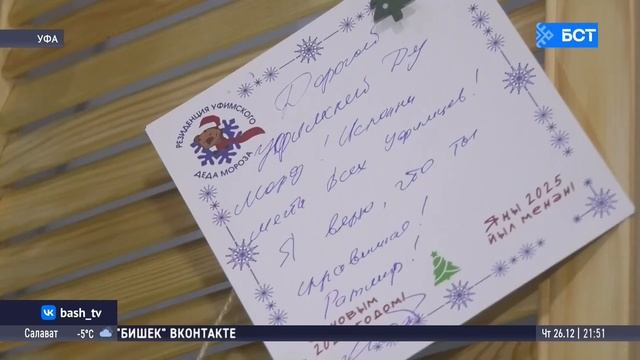 УФА
БСТ
РЕЗИДЕНЦИЯ УФИМСКОГО
ДЕДА МОРОЗА
Дорогой
уфимский Ду
Мороз! Исполни
мечты всех уфимцев!
Я верю, что ты
справишься!
Ратмир!
НОВЫМ
ГОДОМ!
Яңы 2025
йыл менән!
bash_tv
Салават -5°C "БИШЕК" ВКОНТАКТЕ Чт 26.12 | 21:51